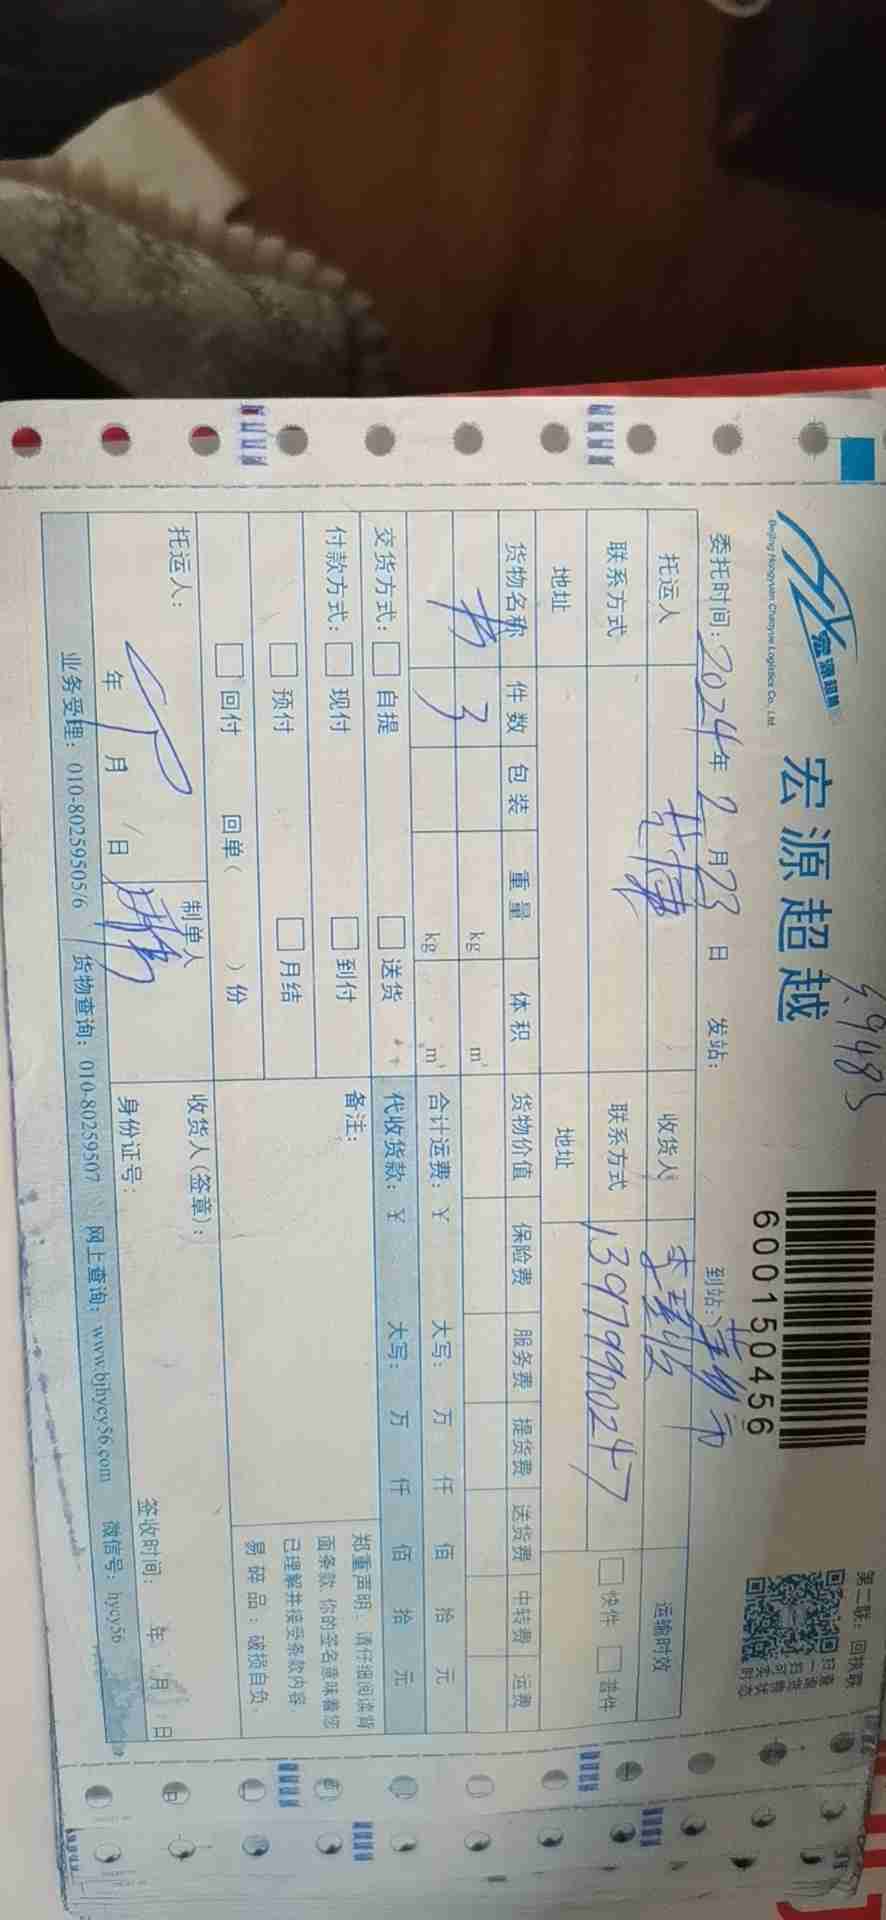 第二联：回执联
宏源超越
宏源超越
Beijing Hongyuan Chaoyue Logistics Co., Ltd.
5.948
6000150456
扫一扫
委托时间：2024年2月23日 发站： 到站：萍乡市
托运人 收货人 运输时效
联系方式 联系方式 13979900247 快件 普件
地址 地址
货物名称 件数 包装 重量 体积 货物价值 保险费 服务费 提货费 送货费 中转费 运费
书 3 kg m³
kg m³ 合计运费：¥ 大写： 万 仟 佰 拾 元
交货方式： 自提 送货 代收货款：¥ 大写： 万 仟 佰 拾 元
付款方式： 现付 到付 备注：
预付 月结
回付 回单（ ）份
郑重声明：请仔细阅读背
面条款 你的签名意味着您
已理解并接受条款内容.
易碎品：破损自负.
托运人： 制单人 收货人(签章)：
年 月 日 身份证号： 签收时间： 年 月 日
业务受理：010-80259505/6 货物查询：010-80259507 网上查询：www.bjhycy56.com 微信号：hycy56